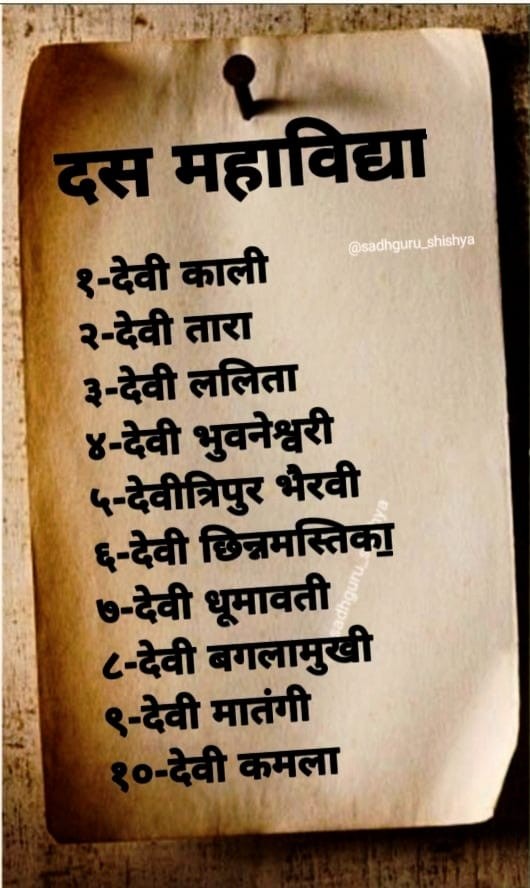 दस महाविद्या
@sadhguru_shishya
१-देवी काली
२-देवी तारा
३-देवी ललिता
४-देवी भुवनेश्वरी
५-देवीत्रिपुर भैरवी
६-देवी छिन्नमस्तिका
७-देवी धूमावती
८-देवी बगलामुखी
९-देवी मातंगी
१०-देवी कमला